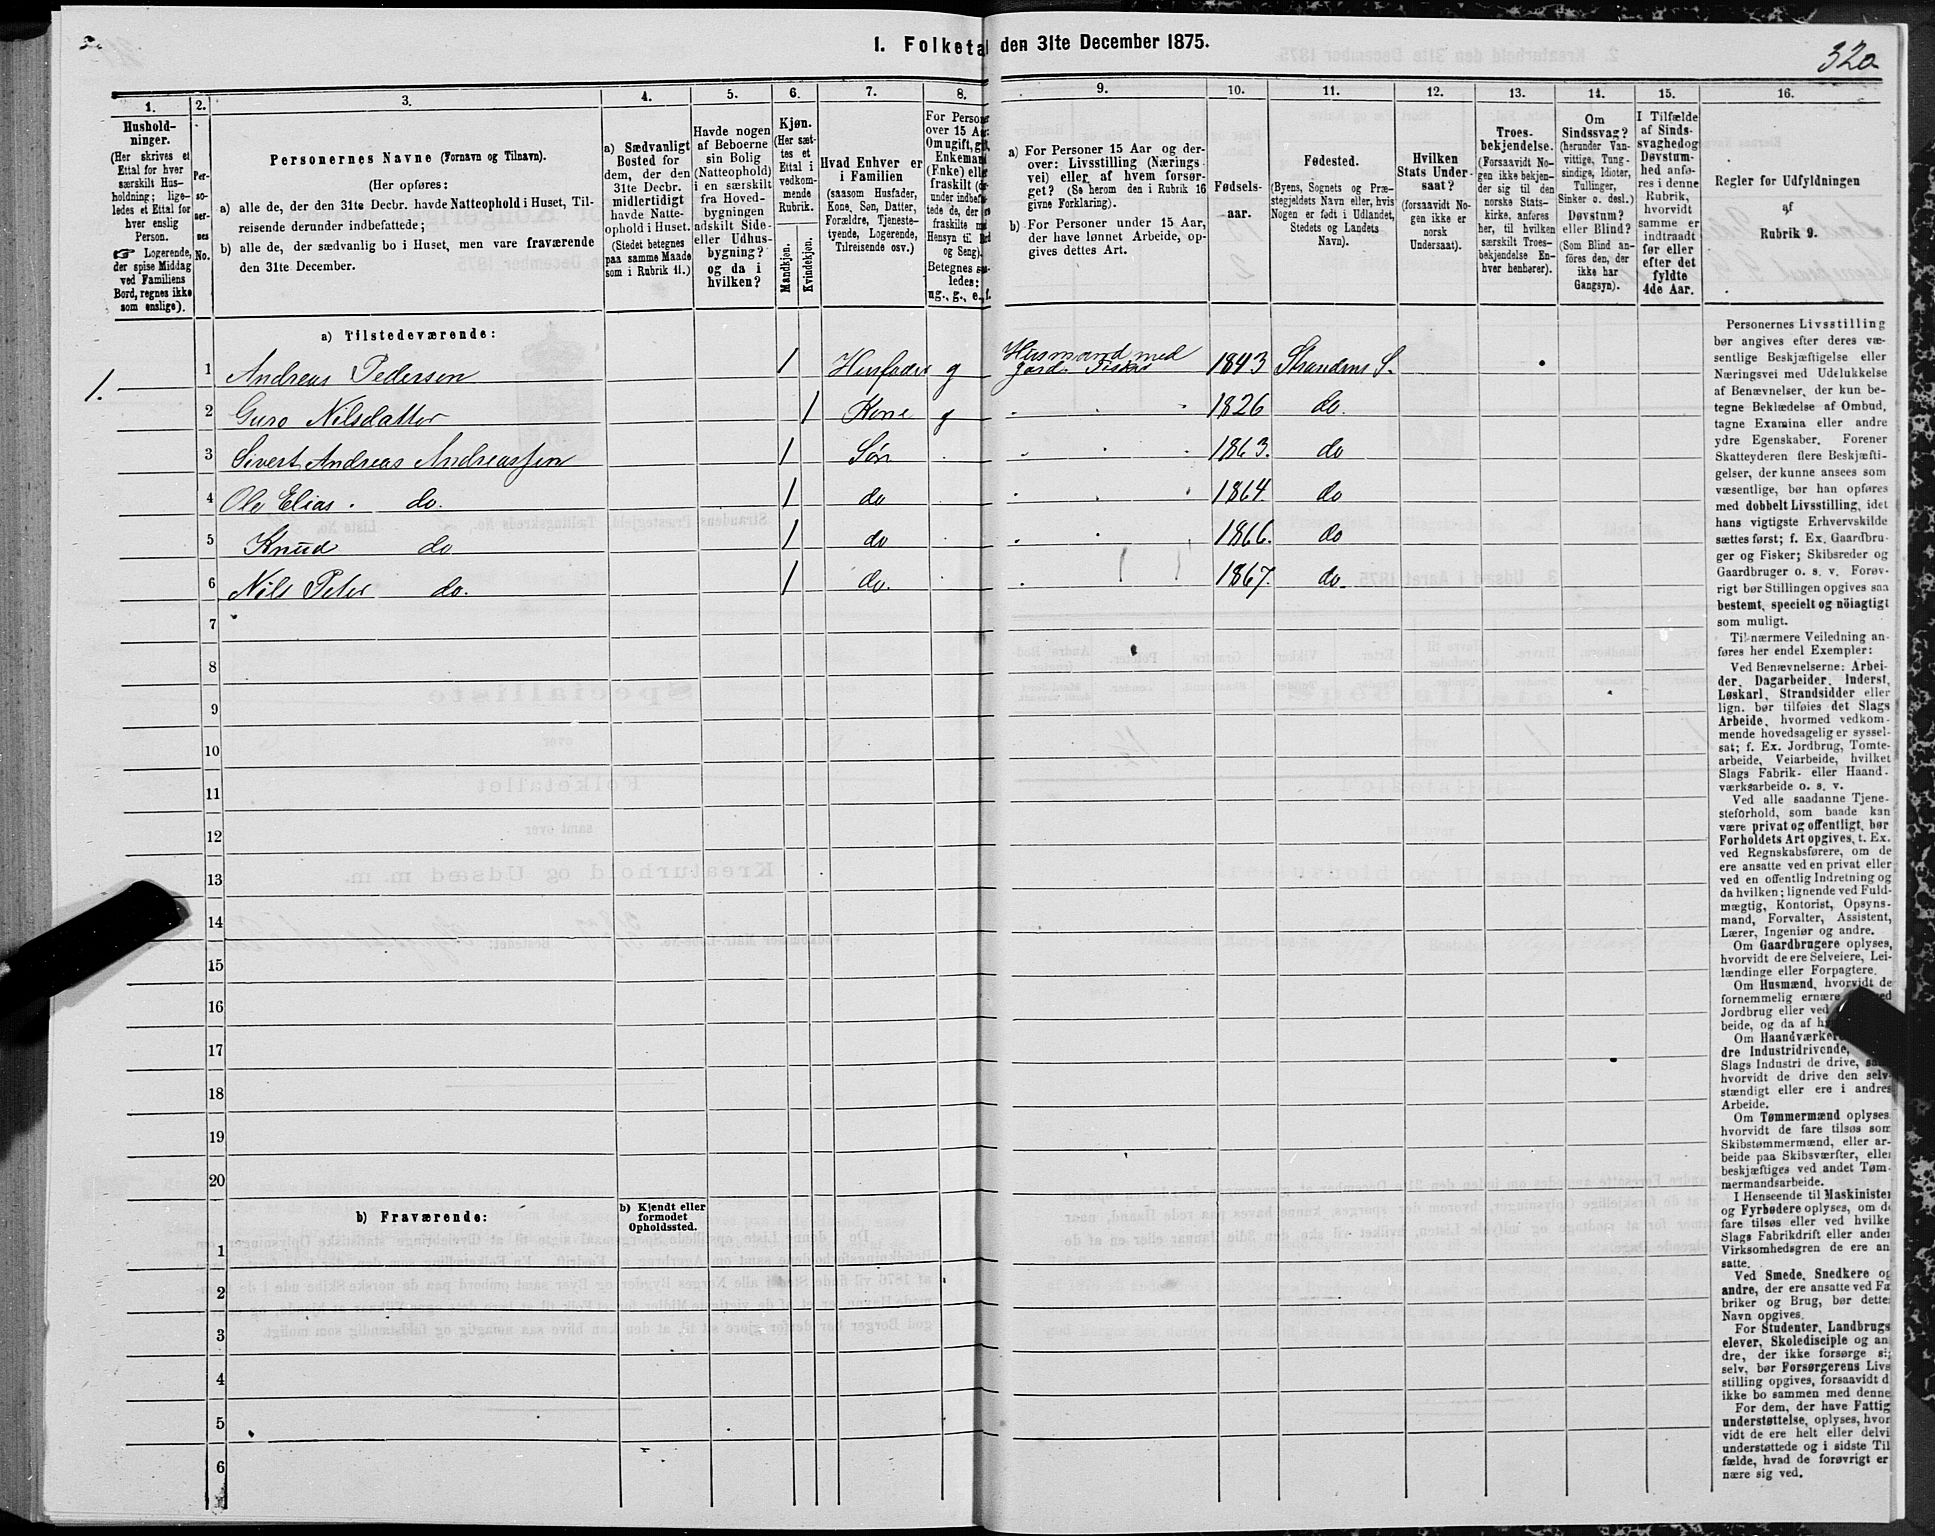 I. Folketal den 31te December 1875.
320
1. 2. 3. 4. 5. 6. 7. 8. 9. 10. 11. 12. 13. 14. 15. 16.
Hushold-
ninger.
(Her skrives et
Ettal for hver
særskilt Hus-
holdning; lige-
ledes et Ettal for
hver enslig
Person.
☞ Logerende,
der spise Middag
ved Familiens
Bord, regnes ikke
som enslige).
Per-
so-
ner-
nes
No.
Personernes Navne (Fornavn og Tilnavn).
(Her opføres:
a) alle de, der den 31te Decbr. havde Natteophold i Huset, Til-
reisende derunder indbefattede;
b) alle de, der sædvanlig bo i Huset, men vare fraværende
den 31te December.
a) Sædvanligt
Bosted for
dem, der den
31te Decbr.
midlertidigt
havde Natte-
ophold i Huset.
(Stedet betegnes
paa samme Maade
som i Rubrik 11.)
Havde nogen
af Beboerne
sin Bolig
(Natteophold)
i en særskilt
fra Hoved-
bygningen
adskilt Side-
eller Udhus-
bygning?
og da i
hvilken?
Kjøn.
(Her sæt-
tes et
Ettal i
vedkom-
mende
Rubrik.
Mandkjøn.
Kvindekjøn.
Hvad Enhver er
i Familien
(saasom Husfader,
Kone, Søn, Datter,
Forældre, Tjeneste-
tyende, Logerende,
Tilreisende osv.)
For Person
over 15 Aa
Om ugift, gi
Enkemand
(Enke) elle
fraskilt
under indbef
tede de, der
fraskilte
Hensyn til
og Seng).
Betegnes
ledes:
ug., g., e., f.
a) For Personer 15 Aar og der-
over: Livsstilling (Nærings-
vei) eller af hvem forsør-
get? (Se herom den i Rubrik 16
givne Forklaring).
b) For Personer under 15 Aar,
der have lønnet Arbeide, op-
gives dettes Art.
Fødsels-
aar.
Fødested.
(Byens, Sognets og Præ-
stegjeldets Navn eller, hvis
Nogen er født i Udlandet,
Stedets og Landets
Navn).
Hvilken
Stats Under-
saat?
(forsaavidt No-
gen ikke er
norsk
Undersaat).
Troes-
bekjendelse.
(Forsaavidt No-
gen ikke bekjen-
der sig til den
norske Stats-
kirke, anføres
her, til hvilken
særskilt Troes-
bekjendelse En-
hver henhører).
Om
Sindssvag?
(herunder Van-
vittige, Tung-
sindige, Idioter,
Tullinger,
Sinker o. desl.)
Døvstum?
eller Blind?
(Som Blind an-
føres den, der
ikke har
Gangsyn).
I Tilfælde
af Sinds-
svaghed og
Døvstum-
hed anfø-
res i denne
Rubrik,
hvorvidt
samme er
indtraadt
før eller
efter det
fyldte
4de Aar.
Regler for Udfyldningen
af
Rubrik 9.
a) Tilstedeværende:
1. 1 Andreas Pedersen 1 Husfader g Husmand med Jord. Fisker 1843 Strandens S.
2 Guro Nilsdatter 1 Kone g 1826 do.
3 Sivert Andreas Andreassen 1 Søn 1863. do
4 Ole Elias. do. 1 do 1864. do
5 Knud do 1 do 1866. do
6 Nils Peter do. 1 do. 1867. do.
7
8
9
10
11
12
13
14
15
16
17
18
19
20
b) Fraværende:
b) Kjendt eller
formodet
Opholdssted.
1
2
3
4
5
6
Personernes Livsstilling
bør angives efter deres væ-
sentlige Beskjæftigelse eller
Næringsvei med Udelukkelse
af Benævnelser, der kun be-
tegne Beklædelse af Ombud,
tagne Examina eller andre
ydre Egenskaber. Forener
Skatteyderen flere Beskjæfti-
gelser, der kunne ansees som
væsentlige, bør han opføres
med dobbelt Livsstilling, idet
hans vigtigste Erhvervskilde
sættes først; f. Ex. Gaardbru-
ger og Fisker; Skibsreder og
Gaardbruger o. s. v. Forøv-
rigt bør Stillingen opgives saa
bestemt, specielt og nöiagtigt
som muligt.
Til nærmere Veiledning an-
føres her endel Exempler:
Ved Benævnelserne: Arbei-
der, Dagarbeider, Inderst,
Løskarl, Strandsidder eller
lign. bør tilføies det Slags
Arbeide, hvormed vedkom-
mende hovedsagelig er syssel-
sat; f. Ex. Jordbrug, Tomte-
arbeide, Veiarbeide, hvilket
Slags Fabrik- eller Haand-
værksarbeide o. s. v.
Ved alle saadanne Tjene-
steforhold, som baade kan
være privat og offentligt, bør
Forholdets Art opgives, t. Ex.
ved Regnskabsførere, om de
ere ansatte ved en privat eller
ved en offentlig Indretning og
da hvilken; lignende ved Fuld-
mægtig, Kontorist, Opsyns-
mand, Forvalter, Assistent,
Lærer, Ingeniør og andre.
Om Gaardbrugere oplyses,
hvorvidt de ere Selveiere, Lei-
lændinge eller Forpagtere.
Om Husmænd, hvorvidt de
fornemmelig ernære ed
Jordbrug eller ved
beide, og da af h
Om Haandværker
dre Industridrivende,
Slags Industri de drive,
hvorvidt de drive den selv-
stændigt eller ere i andres
Arbeide.
Om Tømmermænd oplyses,
hvorvidt de fare tilsøs som
Skibstømmermænd, eller ar-
beide paa Skibsværfter, eller
beskjæftiges ved andet Tøm-
mermandsarbeide.
I Henseende til Maskinister
og Fyrbødere oplyses, om de
fare tilsøs eller ved hvilke
Slags Fabrikdrift eller anden
Virksomhedsgren de ere an
satte.
Ved Smede, Snedkere og
andre, der ere ansatte ved Fa
briker og Brug, bør dette
Navn opgives.
For Studenter, Landbrugs
elever, Skoledisciple og an
dre, der ikke forsørge sig
selv, bør Forsørgerens Livs
stilling opgives, forsaavidt d
ikke bo sammen med denne
For dem, der have Fattig
understøttelse, oplyses, hvor
vidt de ere helt eller delvi
understøttede og i sidste Til
fælde, hvad de forøvrigt er
nære sig ved.